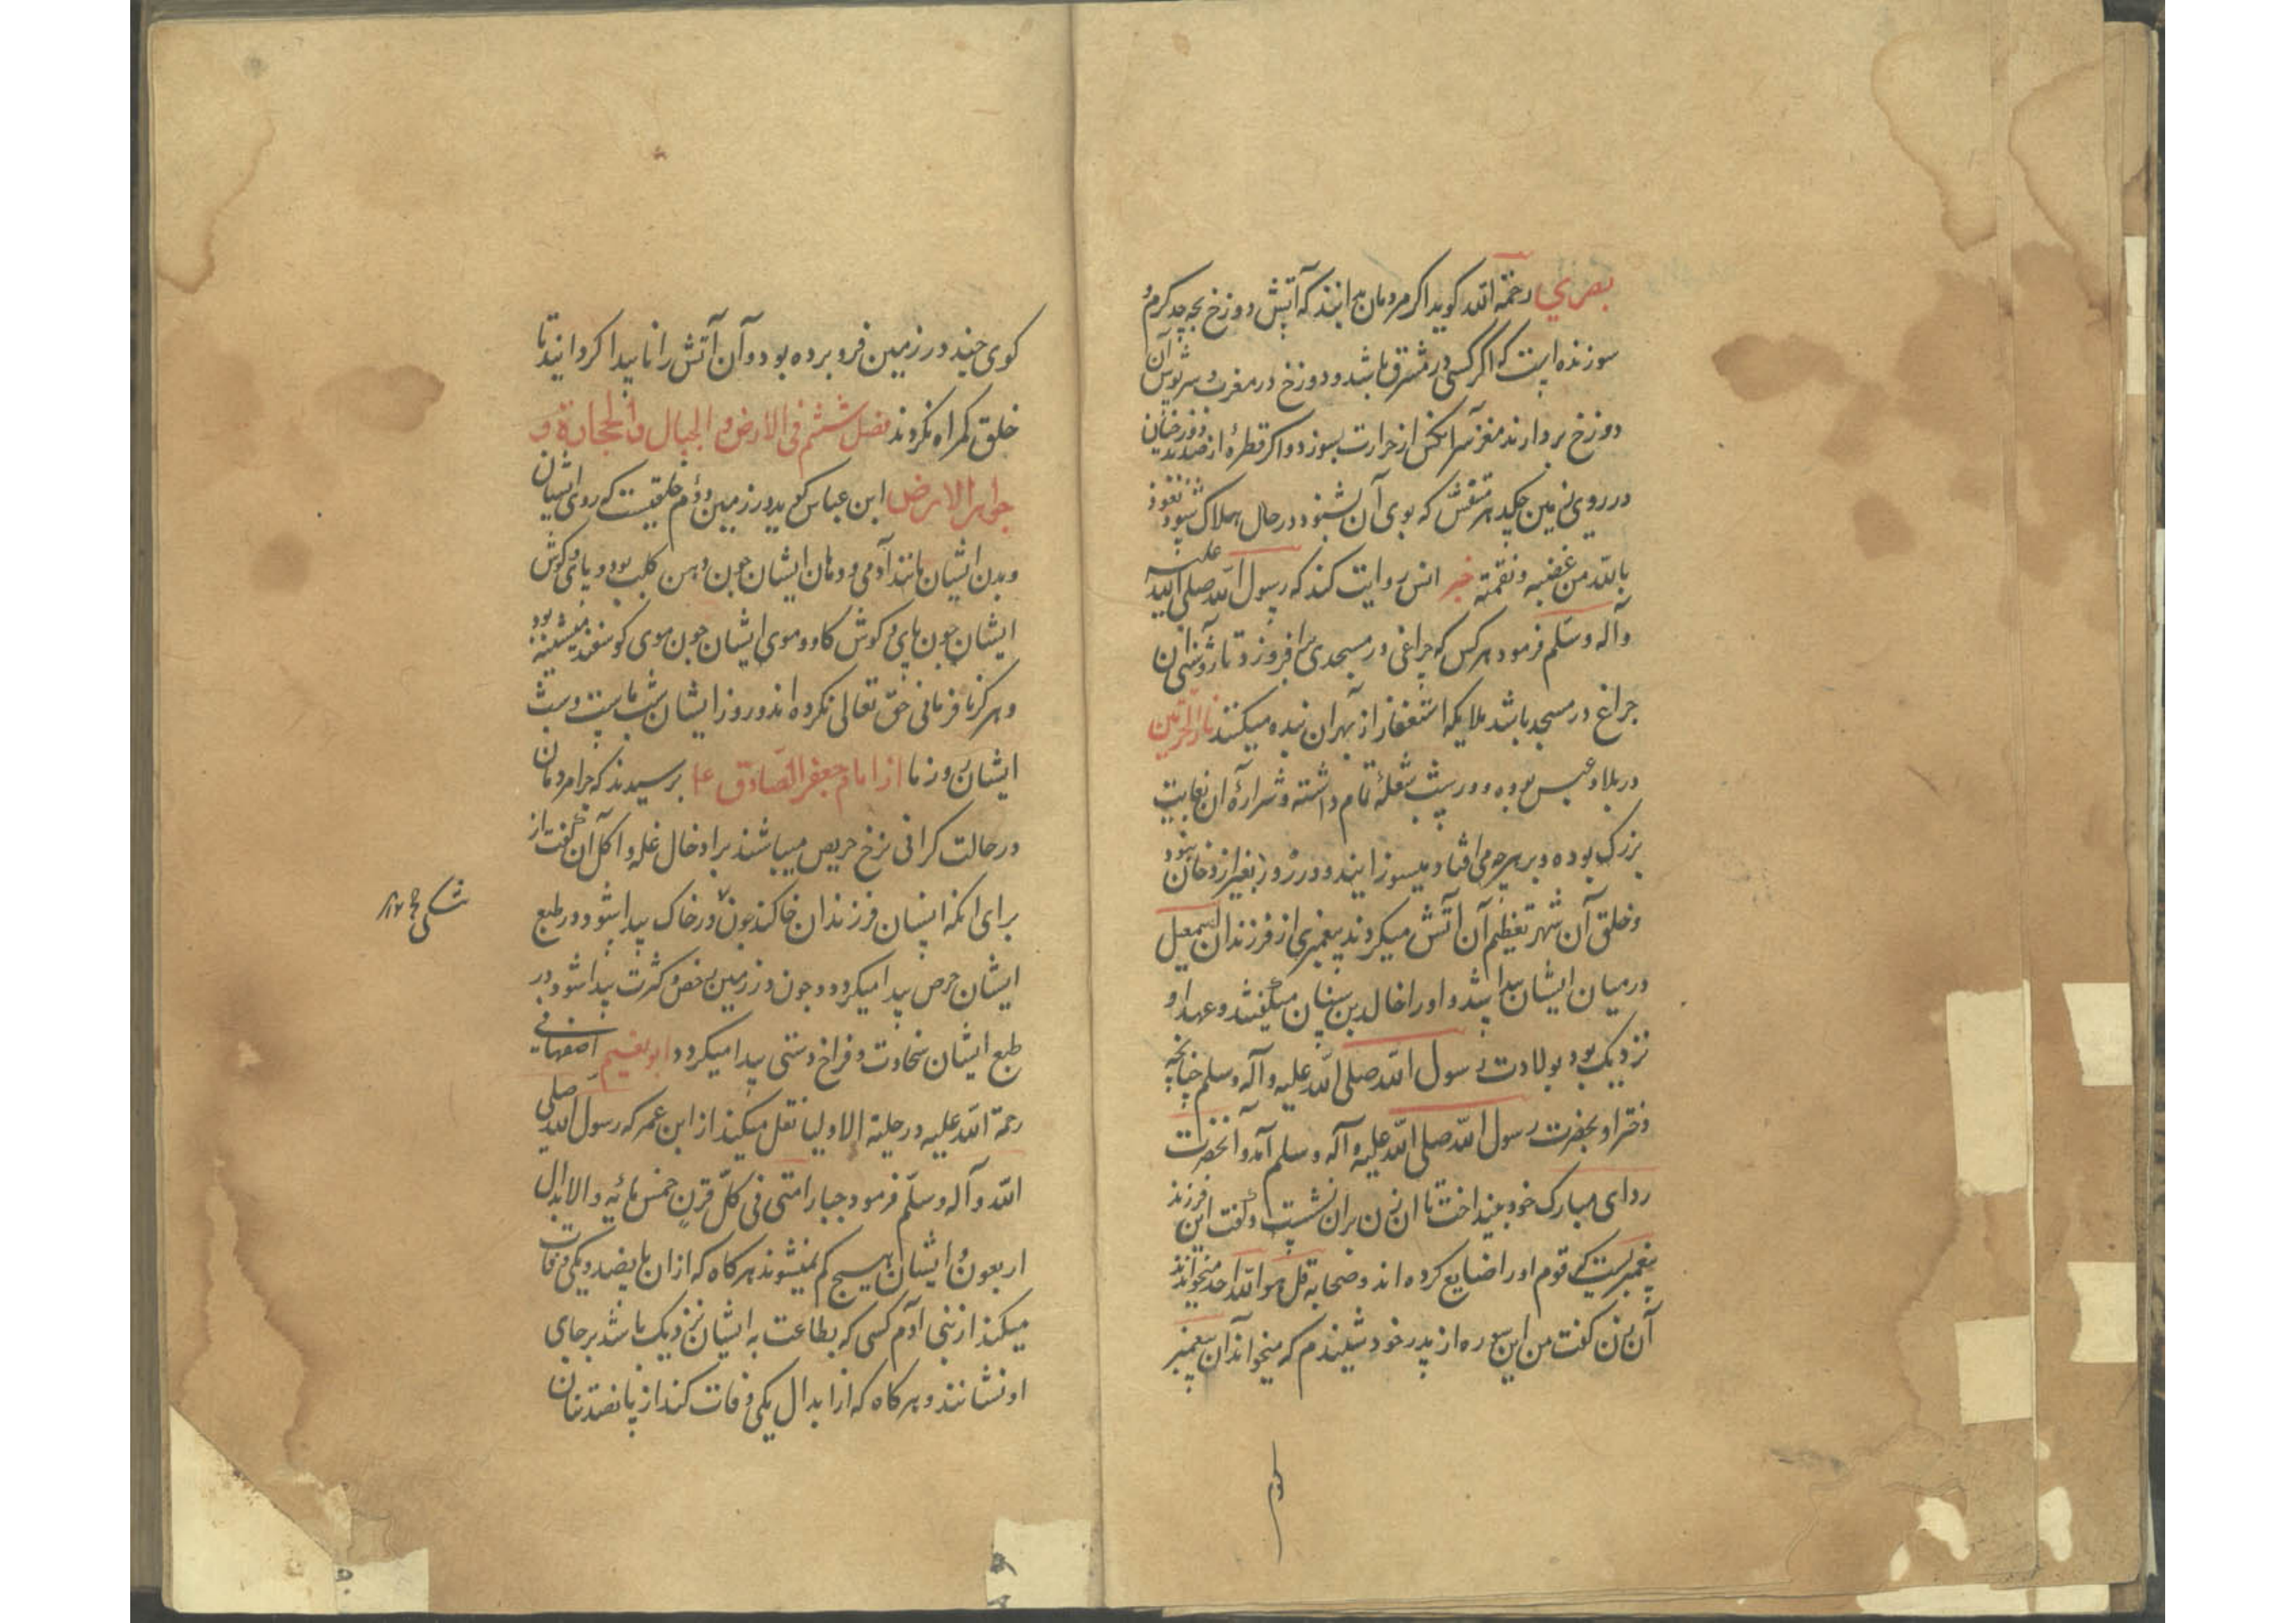 بصری رحمة الله کوید اکر مردمان بدانند که آتش دوزخ بچه حد کرم و
سوزنده است که اکر کسی در مشرق باشد و دوزخ در مغرب و سرپوش آن
دوزخ بردارند مغز سر آنکس از حرارت بسوزد و اکر قطرهٔ از صدید دوزخیان
در روی زمین چکد هر متنفس که بوی آن بشنود در حال هلاک شود نعوذ
بالله من غضبه و نقمته خبر انس روایت کند که رسول الله صلی الله علیه
وآله وسلم فرمود هر کس که چراغی در مسجدی برافروزد تا روشنی آن
چراغ در مسجد باشد ملایکه استغفار از بهر آن بنده میکنند نار الحرتین
در بلاد عبس بوده و در شب شعلهٔ تمام داشته و شرارهٔ آن بغایت
بزرک بوده و بر هر چه می افتاد میسوزانید و در روز بغیر از دخان نبود
و خلق آن شهر تعظیم آن آتش میکردند پیغمبری از فرزندان اسمعیل
در میان ایشان پیدا شد و او را خالد بن سنان میکفتند و عهد او
نزدیک بود بولادت رسول الله صلی الله علیه وآله وسلم چنانچه
دختر او بحضرت رسول الله صلی الله علیه وآله وسلم آمد و آنحضرت
ردای مبارک خود بینداخت تا آن زن بر آن نشست و کفت این فرزند
پیغمبریست که قوم او را ضایع کرده اند و صحابه قل هو الله احد میخواندند
آن زن کفت من این سوره از پدر خود شنیدم که میخواند آن پیغمبر
کوی چند در زمین فرو برده بود و آن آتش را ناپیدا کردانید تا
خلق کمراه نکردند فصل ششم فی الارض و الجبال و الحجارة و
جواهر الارض ابن عباس کوید در زمین دوم خلقیست که روی ایشان
و بدن ایشان مانند آدمی و دهان ایشان چون دهن کلب بود و پای و کوش
ایشان چون پای و کوش کاو و موی ایشان چون موی کوسفند میشینه بود
و هرکز نافرمانی حق تعالی نکرده اند و روز ایشان شب ماست و شب
ایشان روز ما از امام جعفر الصادق ع پرسیدند که چرا مردمان
در حالت کرانی نرخ حریص میباشند بر ادخال غله و اکل آن کفت از
برای آنکه انسان فرزندان خاکند چون در خاک پیدا شود در طبع
ایشان حرص پیدا میکردد و چون در زمین رخص و کثرت پیدا شود در
طبع ایشان سخاوت و فراخ دستی پیدا میکردد ابو نعیم اصفهانی
رحمة الله علیه در حلیة الاولیا نقل میکند از ابن عمر که رسول الله صلی
الله وآله وسلم فرمود خیار امتی فی کل قرن خمس مائه و الابدال
اربعون ایشان هیچ کم نمیشوند هر کاه که از آن پانصد یکی وفات
میکند از بنی آدم کسی که بطاعت به ایشان نزدیک باشد بر جای
او نشانند و هر کاه که از ابدال یکی وفات کند از پانصد تنان